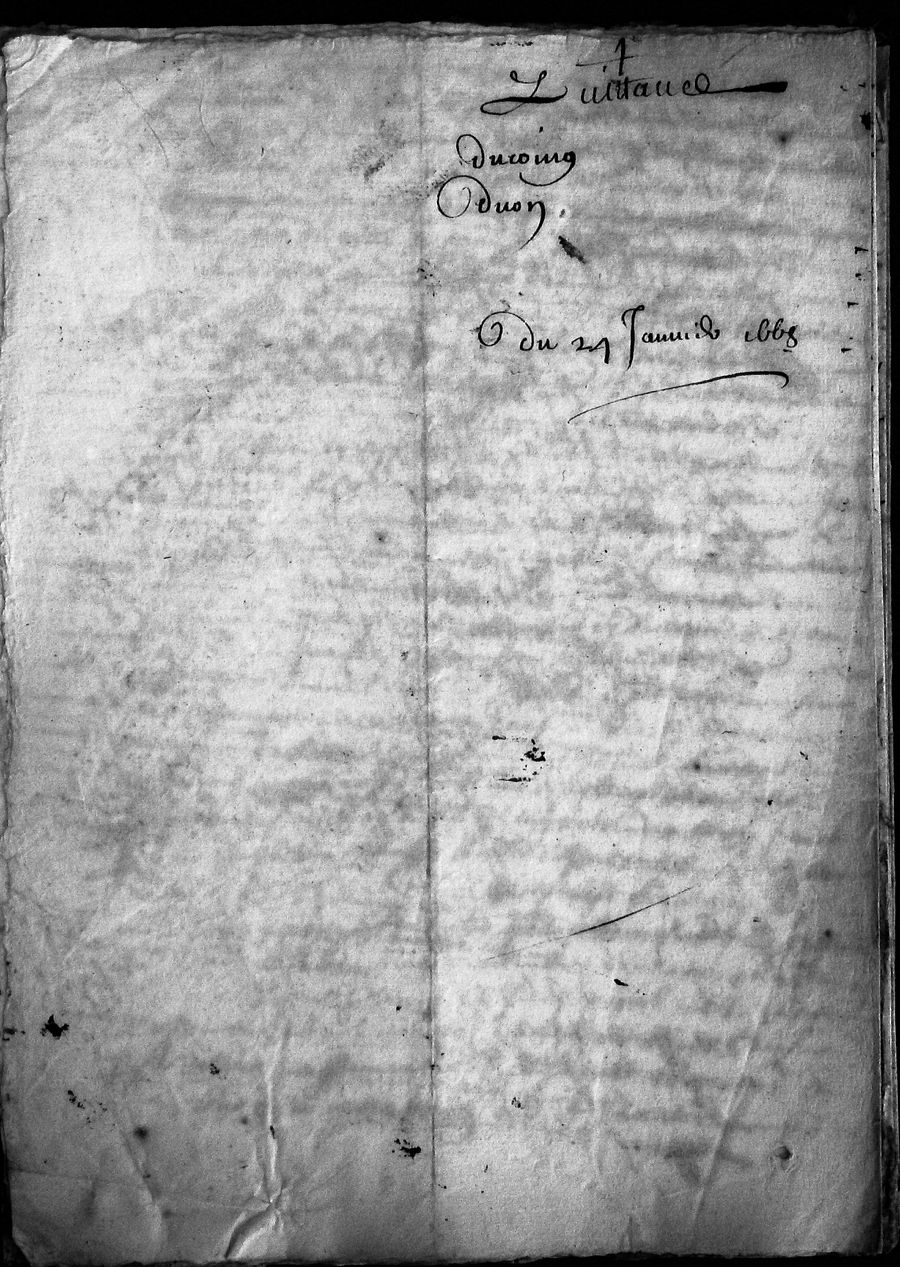 Quittance
ducoing
duon
Du 24 Januier 1668